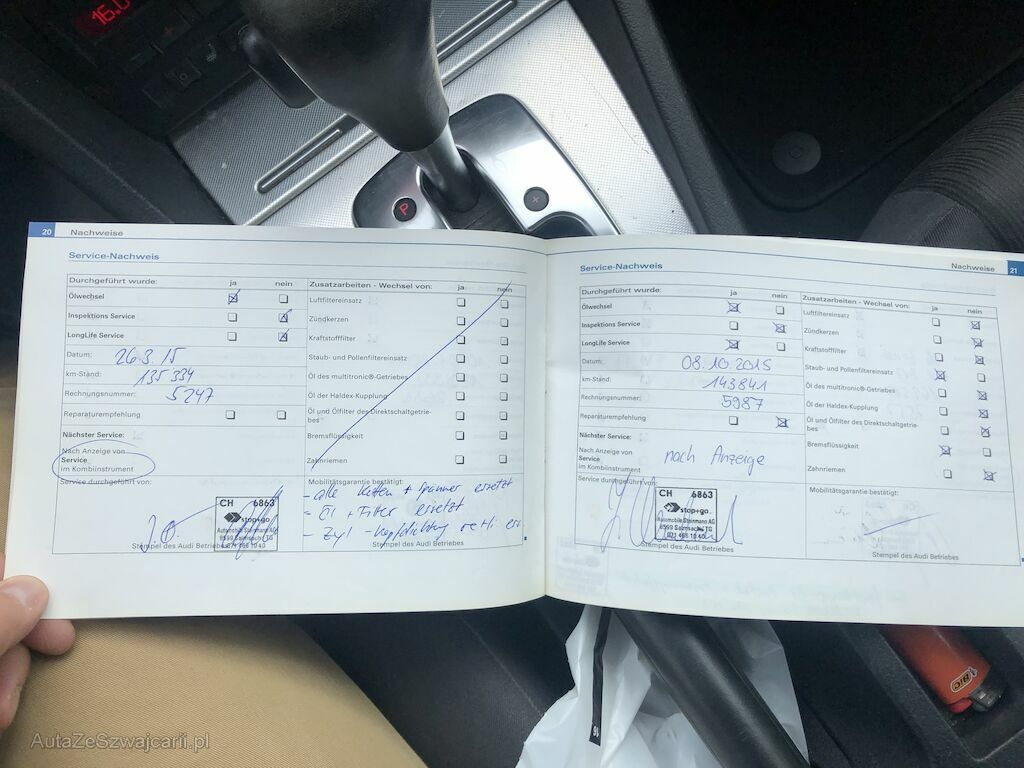 16.0
P
20 Nachweise
Service-Nachweis
Durchgeführt wurde: ja nein
Ölwechsel
Inspektions Service
LongLife Service
Datum: 26.3.15
km-Stand: 135334
Rechnungsnummer: 5247
Reparaturempfehlung
Nächster Service:
Nach Anzeige von
Service
im Kombiinstrument
Service durchgeführt von:
CH 6863
stop+go
Automobile Steinmann AG
8599 Salmsach/TG
071 466 10 40
Stempel des Audi Betriebes
Zusatzarbeiten - Wechsel von: ja nein
Luftfiltereinsatz
Zündkerzen
Kraftstofffilter
Staub- und Pollenfiltereinsatz
Öl des multitronic®-Getriebes
Öl der Haldex-Kupplung
Öl und Ölfilter des Direktschaltgetrie-
bes
Bremsflüssigkeit
Zahnriemen
Mobilitätsgarantie bestätigt:
- alle Ketten + Spanner ersetzt
- Öl + Filter ersetzt
- Zyl -kopfdichtung
Stempel des Audi Betriebes
Nachweise 21
Service-Nachweis
Durchgeführt wurde: ja nein
Ölwechsel
Inspektions Service
LongLife Service
Datum: 08.10.2015
km-Stand: 143841
Rechnungsnummer: 5987
Reparaturempfehlung
Nächster Service:
Nach Anzeige von
Service
im Kombiinstrument
nach Anzeige
Service durchgeführt von:
CH 6863
stop+go
Automobile Steinmann AG
8599 Salmsach/TG
071 466 10 40
Stempel des Audi Betriebes
Zusatzarbeiten - Wechsel von: ja nein
Luftfiltereinsatz
Zündkerzen
Kraftstofffilter
Staub- und Pollenfiltereinsatz
Öl des multitronic®-Getriebes
Öl der Haldex-Kupplung
Öl und Ölfilter des Direktschaltgetrie-
bes
Bremsflüssigkeit
Zahnriemen
Mobilitätsgarantie bestätigt:
Stempel des Audi Betriebes
BIC
AutaZeSzwajcarii.pl